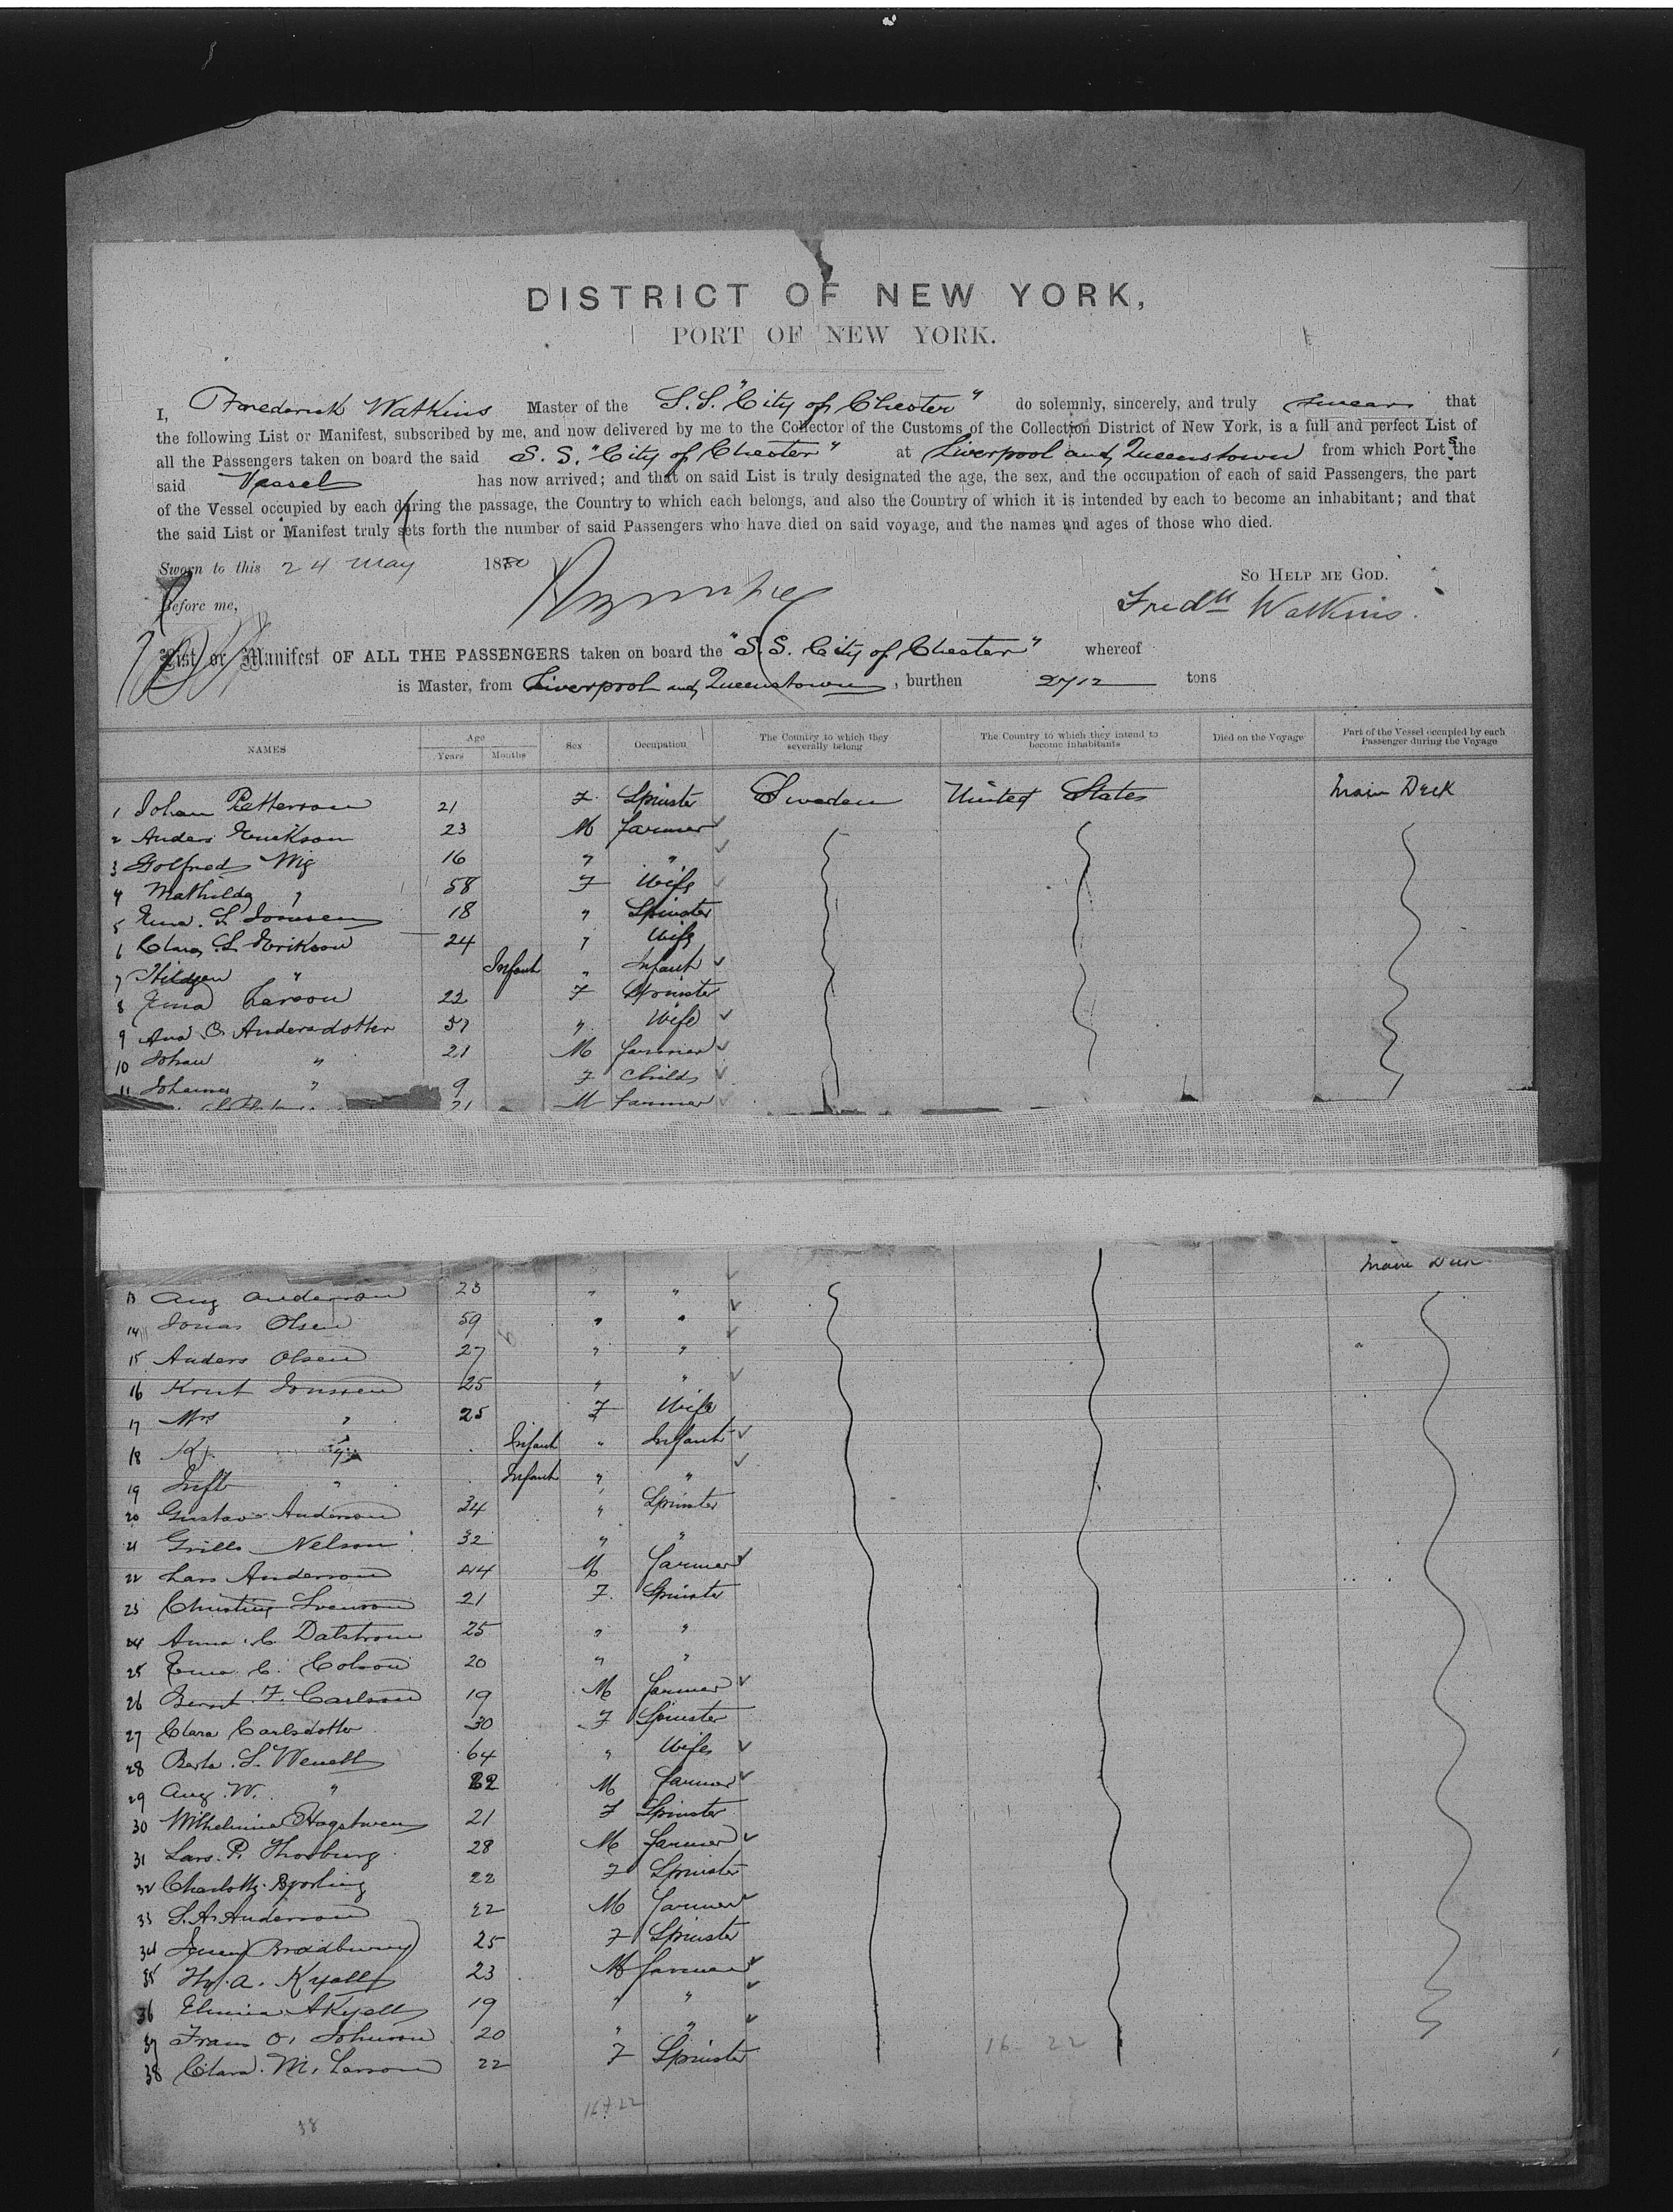 DISTRICT OF NEW YORK,
PORT OF NEW YORK.
I, Frederick Watkins Master of the S.S. "City of Chester" do solemnly, sincerely, and truly swear that
the following List or Manifest, subscribed by me, and now delivered by me to the Collector of the Customs of the Collection District of New York, is a full and perfect List of
all the Passengers taken on board the said S. S. "City of Chester" at Liverpool and Queenstown from which Ports the
said Vessel has now arrived; and that on said List is truly designated the age, the sex, and the occupation of each of said Passengers, the part
of the Vessel occupied by each during the passage, the Country to which each belongs, and also the Country of which it is intended by each to become an inhabitant; and that
the said List or Manifest truly sets forth the number of said Passengers who have died on said voyage, and the names and ages of those who died.
Sworn to this 24 May 1880
So Help me God.
Before me,
Fredk Watkins.
List or Manifest OF ALL THE PASSENGERS taken on board the "S.S. City of Chester" whereof
is Master, from Liverpool and Queenstown, burthen 2712 tons
NAMES Age Years Months Sex Occupation The Country to which they severally belong The Country to which they intend to become inhabitants Died on the Voyage Part of the Vessel occupied by each Passenger during the Voyage
1 Johan Petterson 21 F Spinster Sweden United States Main Deck
2 Anders 23 M farmer
3 Golfred Wig 16 " "
4 Mathilda " 58 F Wife
5 18 " Spinster
6 Clara S. Erikson 24 " Wife
7 " Infant " Infant
8 Larson 22 F Spinster
9 Ana C. Andersdotter 57 " Wife
10 Johan " 21 M farmer
11 Johanna " 9 F Child
21 M farmer
Main Deck
13 Aug Anderson 23 " "
14 Jonas Olsen 59 " "
15 Anders Olsen 27 " "
16 Knut Jonssen 25 " "
17 Mrs " 25 F Wife
18 " Infant " Infant
19 Inft " Infant " "
20 Gustava Anderson 34 " Spinster
21 Nelson 32 " "
22 Lars Anderson 44 M farmer
23 Christina Svenson 21 F. Spinster
24 Anna C. Dalstrom 25 " "
25 C. Colson 20 " "
26 Bernt F. Carlson 19 M farmer
27 Clara Carlsdotter 30 F Spinster
28 S. 64 " Wife
29 Aug. W. " 22 M farmer
30 Wilhelmina 21 F Spinster
31 Lars P. Thorburg 28 M farmer
32 Charlotte 22 F Spinster
33 S. A. Anderson 22 M farmer
34 Bradbury 25 F Spinster
35 A. Kyell 23 M farmer
36 A Kyell 19 " "
37 Frans O. Johnson 20 " "
38 Clara M. Larson 22 F Spinster
16-22
16+22
38